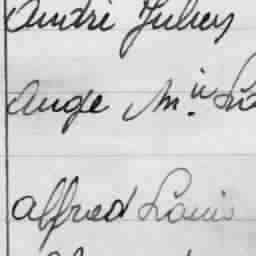 André Jules
Ange M.
Alfred Louis